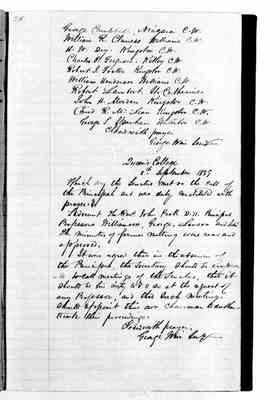 George Campbell Niagara C.W.
William R. Cluness Williams C.W.
H. W. Day Kingston C.W.
Charles H. Gregory Kelley C.W.
Robert J. Foster Kingston C.W.
William Henderson Williams C.W.
Robert Lambert St Catherines
John H. Morden Kingston C.W.
David R. McLean Kingston C.W.
George L. Spencer C.W.
Closed with prayer
George Weir Secretary
Queen's College
September 1855
Which day the Senatus met on the call of
the Principal and was duly constituted with
prayer.
Sederunt The Revd John Cook D.D. Principal
Professors Williamson, George, Lawson and Weir
The minutes of former meeting were read and
approved.
It was agreed that in the absence of
the Principal, the Secretary should be
to call meetings of the Senatus, that it
should be his duty to do so at the request of
any Professor, and that such meetings
should appoint their own Chairman &
their proceedings.
Closed with prayer.
George Weir Secty